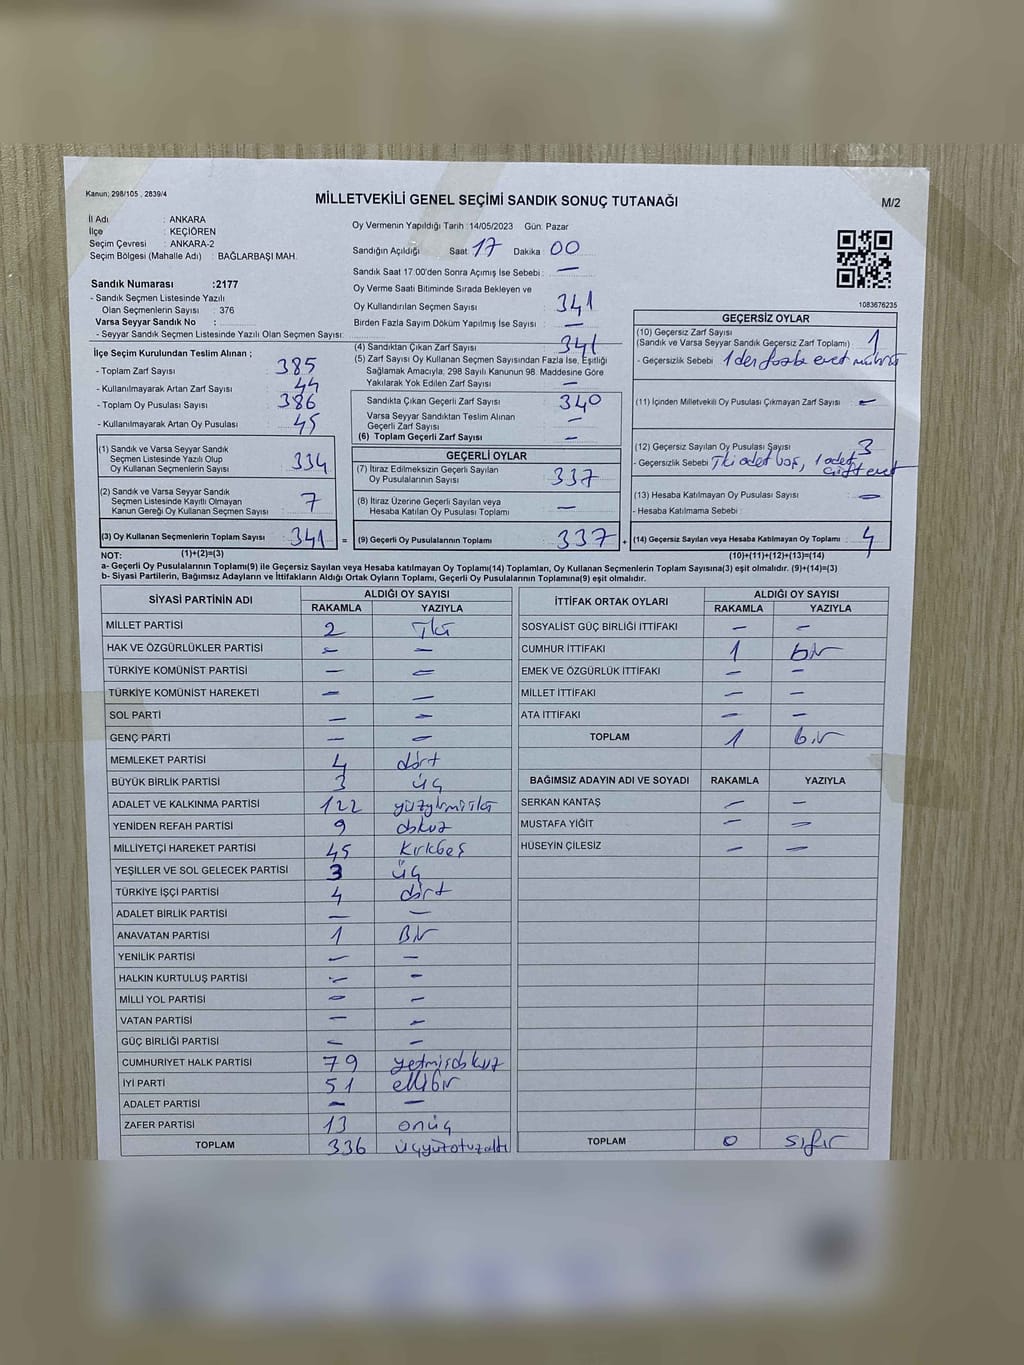 Kanun; 298/105 , 2839/4
MİLLETVEKİLİ GENEL SEÇİMİ SANDIK SONUÇ TUTANAĞI
M/2
İl Adı : ANKARA
İlçe : KEÇİÖREN
Seçim Çevresi : ANKARA-2
Seçim Bölgesi (Mahalle Adı) : BAĞLARBAŞI MAH.
Sandık Numarası :2177
- Sandık Seçmen Listesinde Yazılı
Olan Seçmenlerin Sayısı : 376
Varsa Seyyar Sandık No :
- Seyyar Sandık Seçmen Listesinde Yazılı Olan Seçmen Sayısı:
İlçe Seçim Kurulundan Teslim Alınan ;
- Toplam Zarf Sayısı : 385
- Kullanılmayarak Artan Zarf Sayısı : 44
- Toplam Oy Pusulası Sayısı : 386
- Kullanılmayarak Artan Oy Pusulası : 45
(1) Sandık ve Varsa Seyyar Sandık
Seçmen Listesinde Yazılı Olup
Oy Kullanan Seçmenlerin Sayısı : 334
(2) Sandık ve Varsa Seyyar Sandık
Seçmen Listesinde Kayıtlı Olmayan
Kanun Gereği Oy Kullanan Seçmen Sayısı : 7
(3) Oy Kullanan Seçmenlerin Toplam Sayısı : 341 =
Oy Vermenin Yapıldığı Tarih :14/05/2023 Gün: Pazar
Sandığın Açıldığı Saat: 17 Dakika : 00
Sandık Saat 17:00'den Sonra Açımış İse Sebebi : —
Oy Verme Saati Bitiminde Sırada Bekleyen ve
Oy Kullandırılan Seçmen Sayısı : 341
Birden Fazla Sayım Döküm Yapılmış İse Sayısı : —
(4) Sandıktan Çıkan Zarf Sayısı : 341
(5) Zarf Sayısı Oy Kullanan Seçmen Sayısından Fazla İse, Eşitliği
Sağlamak Amacıyla; 298 Sayılı Kanunun 98. Maddesine Göre
Yakılarak Yok Edilen Zarf Sayısı : —
Sandıkta Çıkan Geçerli Zarf Sayısı : 340
Varsa Seyyar Sandıktan Teslim Alınan
Geçerli Zarf Sayısı : —
(6) Toplam Geçerli Zarf Sayısı : —
GEÇERLİ OYLAR
(7) İtiraz Edilmeksizin Geçerli Sayılan
Oy Pusulalarının Sayısı : 337
(8) İtiraz Üzerine Geçerli Sayılan veya
Hesaba Katılan Oy Pusulası Toplamı : —
(9) Geçerli Oy Pusulalarının Toplamı : 337 +
1083676235
GEÇERSİZ OYLAR
(10) Geçersiz Zarf Sayısı
(Sandık ve Varsa Seyyar Sandık Geçersiz Zarf Toplamı) : 1
- Geçersizlik Sebebi : 1 den fazla evet mührü
(11) İçinden Milletvekili Oy Pusulası Çıkmayan Zarf Sayısı : —
(12) Geçersiz Sayılan Oy Pusulası Sayısı : 3
- Geçersizlik Sebebi : İki adet boş, 1 adet
çift evet
(13) Hesaba Katılmayan Oy Pusulası Sayısı : —
- Hesaba Katılmama Sebebi :
(14) Geçersiz Sayılan veya Hesaba Katılmayan Oy Toplamı : 4
NOT: (1)+(2)=(3) (10)+(11)+(12)+(13)=(14)
a- Geçerli Oy Pusulalarının Toplamı(9) ile Geçersiz Sayılan veya Hesaba katılmayan Oy Toplamı(14) Toplamları, Oy Kullanan Seçmenlerin Toplam Sayısına(3) eşit olmalıdır. (9)+(14)=(3)
b- Siyasi Partilerin, Bağımsız Adayların ve İttifakların Aldığı Ortak Oyların Toplamı, Geçerli Oy Pusulalarının Toplamına(9) eşit olmalıdır.
SİYASİ PARTİNİN ADI ALDIĞI OY SAYISI
RAKAMLA YAZIYLA
MİLLET PARTİSİ 2 iki
HAK VE ÖZGÜRLÜKLER PARTİSİ — —
TÜRKİYE KOMÜNİST PARTİSİ — —
TÜRKİYE KOMÜNİST HAREKETİ — —
SOL PARTİ — —
GENÇ PARTİ — —
MEMLEKET PARTİSİ 4 dört
BÜYÜK BİRLİK PARTİSİ 3 üç
ADALET VE KALKINMA PARTİSİ 122 yüzyirmiiki
YENİDEN REFAH PARTİSİ 9 dokuz
MİLLİYETÇİ HAREKET PARTİSİ 45 kırkbeş
YEŞİLLER VE SOL GELECEK PARTİSİ 3 üç
TÜRKİYE İŞÇİ PARTİSİ 4 dört
ADALET BİRLİK PARTİSİ — —
ANAVATAN PARTİSİ 1 Bir
YENİLİK PARTİSİ — —
HALKIN KURTULUŞ PARTİSİ — —
MİLLİ YOL PARTİSİ — —
VATAN PARTİSİ — —
GÜÇ BİRLİĞİ PARTİSİ — —
CUMHURİYET HALK PARTİSİ 79 yetmişdokuz
İYİ PARTİ 51 ellibir
ADALET PARTİSİ — —
ZAFER PARTİSİ 13 onüç
TOPLAM 336 üçyüzotuzaltı
İTTİFAK ORTAK OYLARI ALDIĞI OY SAYISI
RAKAMLA YAZIYLA
SOSYALİST GÜÇ BİRLİĞİ İTTİFAKI — —
CUMHUR İTTİFAKI 1 bir
EMEK VE ÖZGÜRLÜK İTTİFAKI — —
MİLLET İTTİFAKI — —
ATA İTTİFAKI — —
TOPLAM 1 bir
BAĞIMSIZ ADAYIN ADI VE SOYADI RAKAMLA YAZIYLA
SERKAN KANTAŞ — —
MUSTAFA YİĞİT — —
HÜSEYİN ÇİLESİZ — —
TOPLAM 0 sıfır